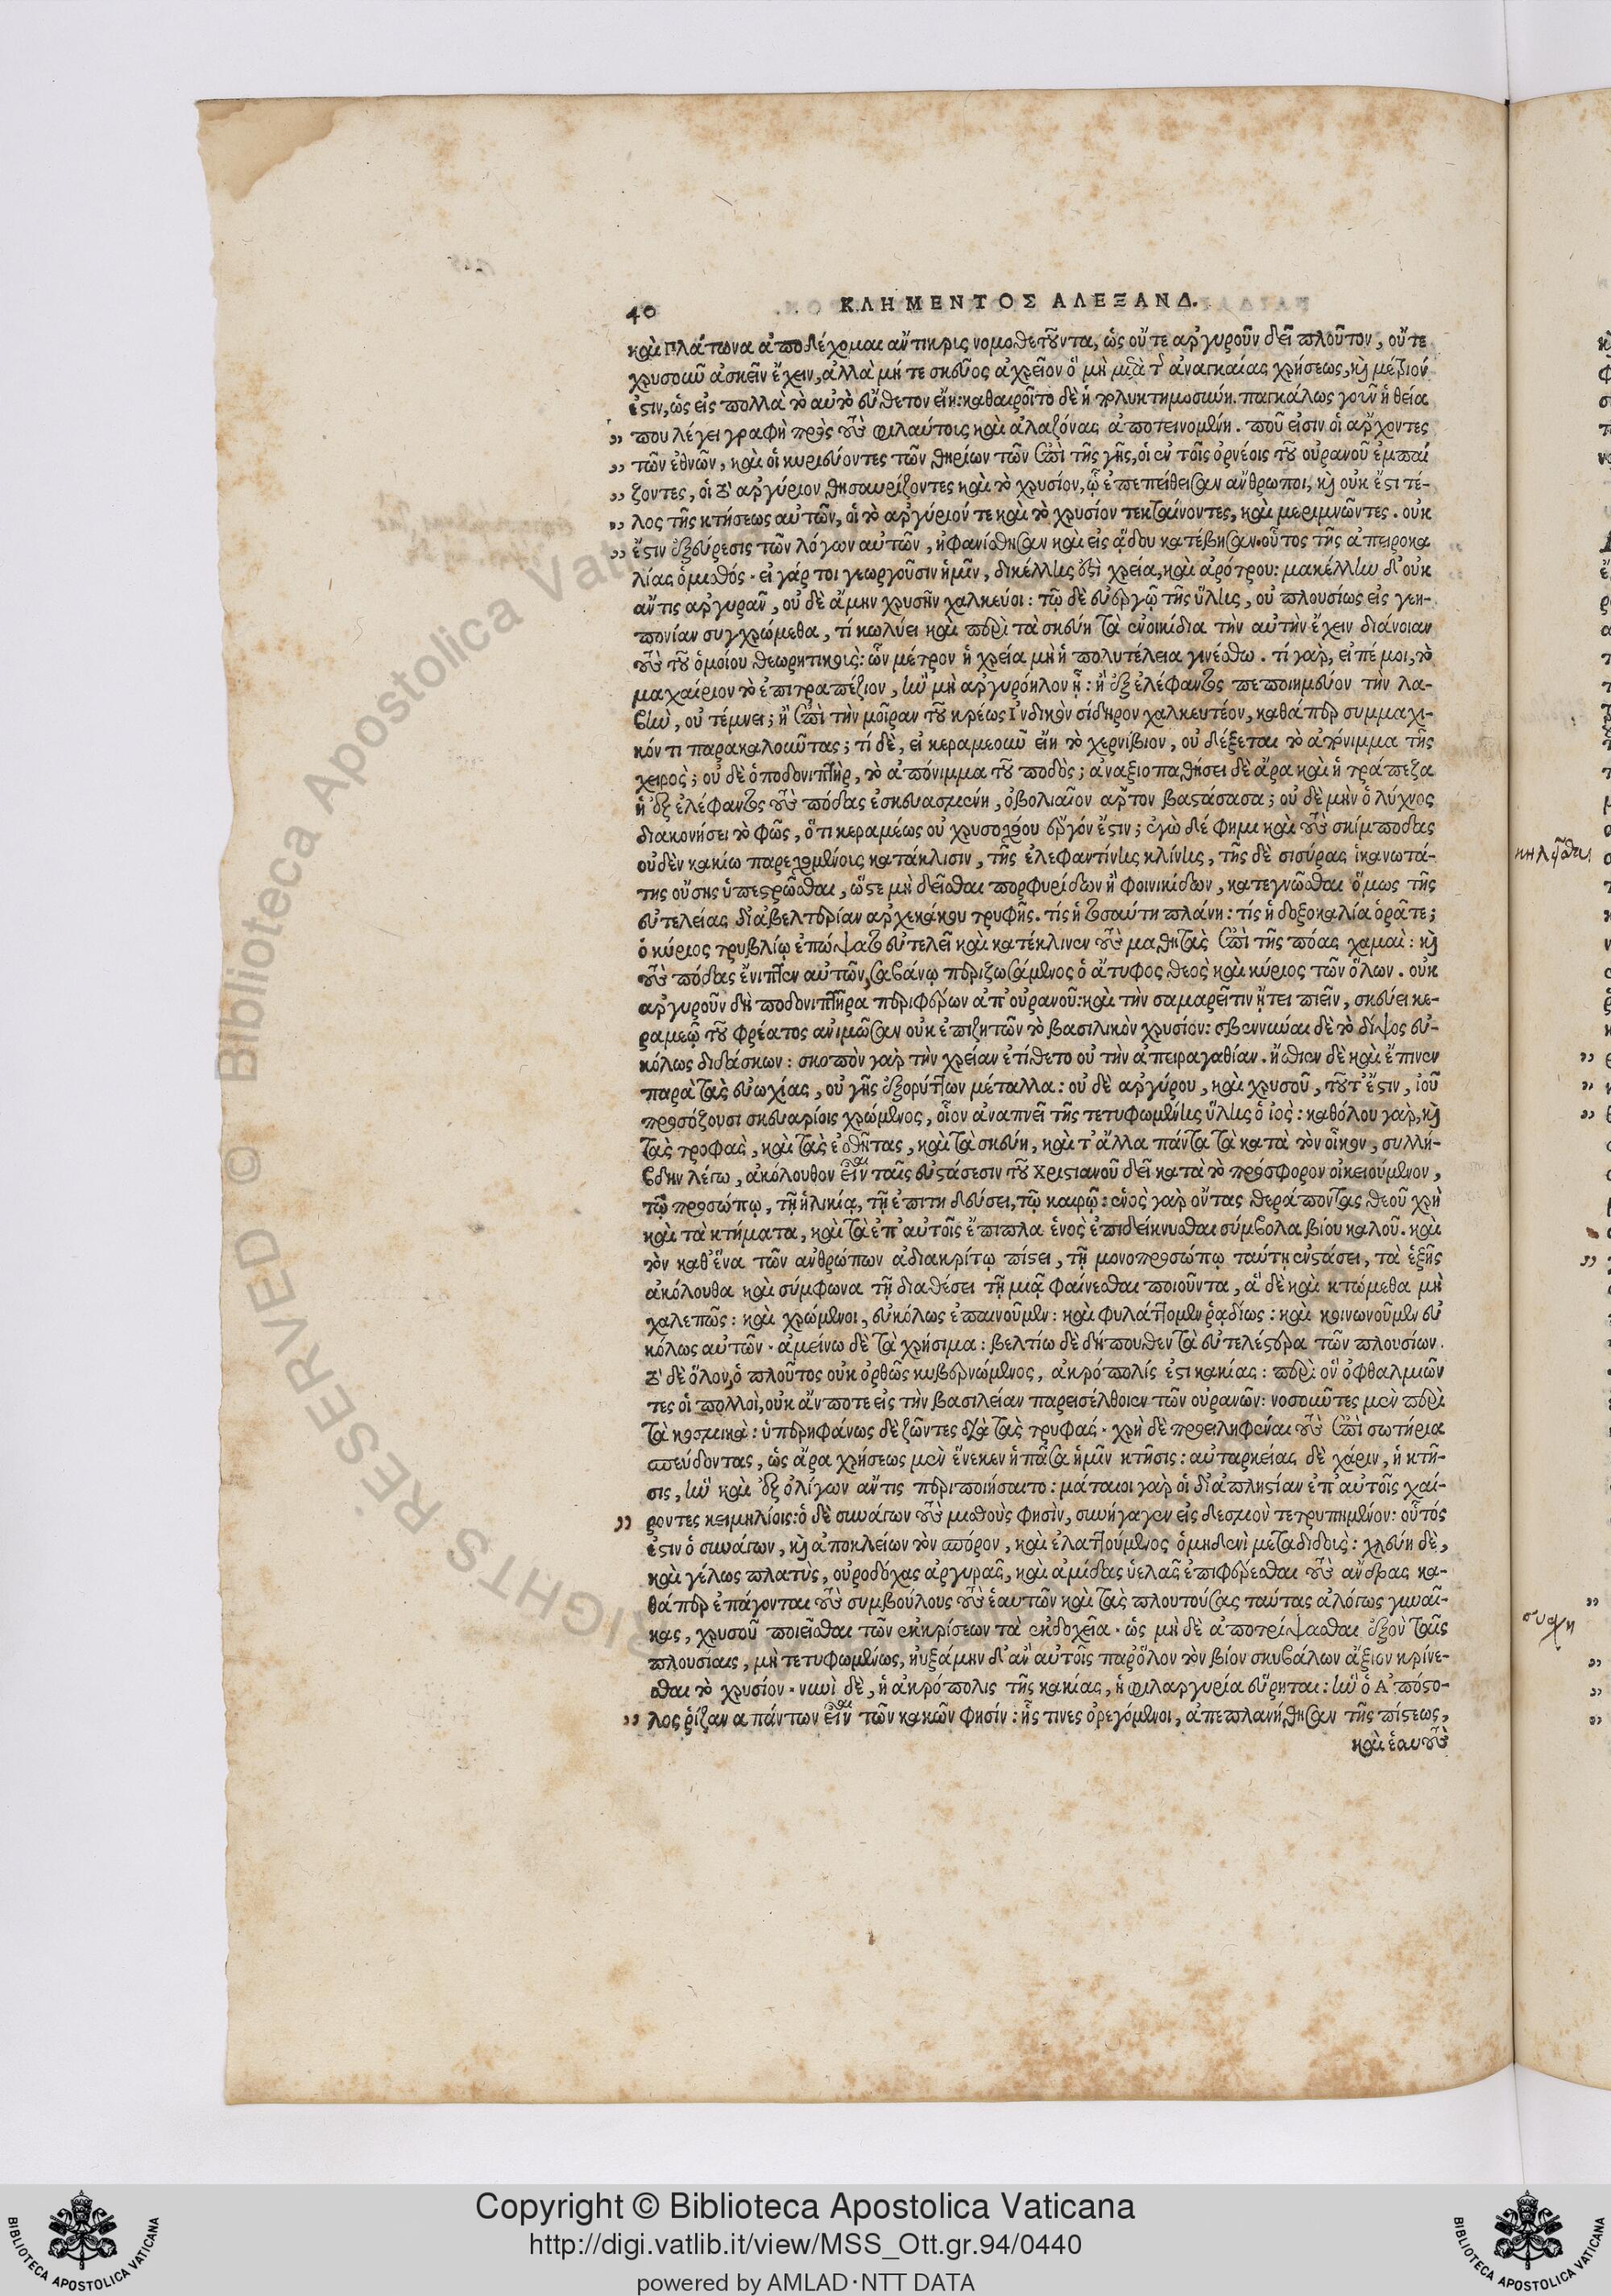 40 ΚΛΗΜΕΝΤΟΣ ΑΛΕΞΑΝΔ.
καὶ Πλάτωνα ἀποδέχομαι ἄντικρις νομοθετοῦντα, ὡς οὔτε ἀργυροῦν δεῖ πλοῦτον, οὔτε
χρυσοῦν ἀσκεῖν ἔχειν, ἀλλὰ μή τε σκεῦος ἀχρεῖον ὃ μὴ μετὰ τ ἀναγκαίας χρήσεως, καὶ μέτριόν
ἐστιν, ὡς εἰς πολλὰ τὸ αὐτὸ εὔθετον εἴη: καθαιροῖτο δὲ ἡ πολυκτημοσύνη. παγκάλως γοῦν ἡ θεία
„ που λέγει γραφὴ πρὸς τοὺς φιλαύτοις καὶ ἀλαζόνας ἀποτεινομένη. ποῦ εἰσιν οἱ ἄρχοντες
„ τῶν ἐθνῶν, καὶ οἱ κυριεύοντες τῶν θηρίων τῶν ἐπὶ τῆς γῆς, οἱ ἐν τοῖς ὀρνέοις τοῦ οὐρανοῦ ἐμπαί
„ ζοντες, οἱ τὸ ἀργύριον θησαυρίζοντες καὶ τὸ χρυσίον, ᾧ ἐπεπείθεισαν ἄνθρωποι, καὶ οὐκ ἔστι τέ-
„ λος τῆς κτήσεως αὐτῶν, οἱ τὸ ἀργύριόν τε καὶ τὸ χρυσίον τεκταίνοντες, καὶ μεριμνῶντες. οὐκ
„ ἔστιν ἐξεύρεσις τῶν λόγων αὐτῶν, ἠφανίσθησαν καὶ εἰς ᾅδου κατέβησαν. οὗτος τῆς ἀπειροκα
λίας ὁ μισθός. εἰ γάρ τοι γεωργοῦσιν ἡμῖν, δικέλλης ἐστὶ χρεία, καὶ ἀρότρου: μακέλλην δ' οὐκ
ἄν τις ἀργυρᾶν, οὐ δὲ ἄμην χρυσῆν χαλκεύοι: τῷ δὲ εὐεργῷ τῆς ὕλης, οὐ πλουσίως εἰς γεη-
πονίαν συγχρώμεθα, τί κωλύει καὶ περὶ τὰ σκεύη τὰ ἐνοικίδια τὴν αὐτὴν ἔχειν διάνοιαν
τοὺς τοῦ ὁμοίου θεωρητικοὺς: ὧν μέτρον ἡ χρεία μὴ ἡ πολυτέλεια γινέσθω. τί γάρ, εἰπέ μοι, τὸ
μαχαίριον τὸ ἐπιτραπέζιον, ἢν μὴ ἀργυρόηλον ᾖ: ἢ ἐξ ἐλέφαντος πεποιημένον τὴν λα-
βὴν, οὐ τέμνει; ἢ ἐπὶ τὴν μοῖραν τοῦ κρέως Ἰνδικὸν σίδηρον χαλκευτέον, καθάπερ συμμαχι-
κόν τι παρακαλοῦντας; τί δὲ, εἰ κεραμεοῦν εἴη τὸ χερνίβιον, οὐ δέξεται τὸ ἀπόνιμμα τῆς
χειρὸς; οὐ δὲ ὁ ποδονιπτὴρ, τὸ ἀπόνιμμα τοῦ ποδὸς; ἀναξιοπαθήσει δὲ ἄρα καὶ ἡ τράπεζα
ἡ ἐξ ἐλέφαντος τοὺς πόδας ἐσκευασμένη, ὀβολιαῖον ἄρτον βαστάσασα; οὐ δὲ μὴν ὁ λύχνος
διακονήσει τὸ φῶς, ὅτι κεραμέως οὐ χρυσοχόου ἔργόν ἔστιν; ἐγὼ δέ φημι καὶ τοὺς σκίμποδας
οὐδὲν κακίω παρεχομένοις κατάκλισιν, τῆς ἐλεφαντίνης κλίνης, τῆς δὲ σισύρας ἱκανωτά-
της οὔσης ὑπεστρῶσθαι, ὥστε μὴ δεῖσθαι πορφυρίδων ἢ φοινικίδων, κατεγνῶσθαι ὅμως τῆς
εὐτελείας δι' ἀβελτερίαν ἀρχεκάκου τρυφῆς. τίς ἡ τοσαύτη πλάνη: τίς ἡ δοξοκαλία ὁρᾶτε;
ὁ κύριος τρυβλίῳ ἐπώψατο εὐτελεῖ καὶ κατέκλινεν τοὺς μαθητὰς ἐπὶ τῆς πόας χαμαὶ: καὶ
τοὺς πόδας ἔνιπτεν αὐτῶν, σαβάνῳ περιζωσάμενος ὁ ἄτυφος θεὸς καὶ κύριος τῶν ὅλων. οὐκ
ἀργυροῦν δὴ ποδονιπτῆρα περιφέρων ἀπ' οὐρανοῦ: καὶ τὴν σαμαρεῖτιν ᾔτει πιεῖν, σκεύει κε-
ραμεῷ τοῦ φρέατος ἀνιμῶσαν οὐκ ἐπιζητῶν τὸ βασιλικὸν χρυσίον: σβεννύναι δὲ τὸ δίψος εὐ-
κόλως διδάσκων: σκοπὸν γὰρ τὴν χρείαν ἐτίθετο οὐ τὴν ἀπειραγαθίαν. ἤσθιεν δὲ καὶ ἔπινεν
παρὰ τὰς εὐωχίας, οὐ γῆς ἐξορύττων μέταλλα: οὐ δὲ ἀργύρου, καὶ χρυσοῦ, τοῦτ' ἔστιν, ἰοῦ
προσόζουσι σκευαρίοις χρώμενος, οἷον ἀναπνεῖ τῆς τετυφωμένης ὕλης ὁ ἰὸς: καθόλου γὰρ, καὶ
τὰς τροφὰς, καὶ τὰς ἐσθῆτας, καὶ τὰ σκεύη, καὶ τ' ἄλλα πάντα τὰ κατὰ τὸν οἶκον, συλλή-
βδην λέγω, ἀκόλουθον εἶναι ταῖς ἐνστάσεσιν τοῦ Χριστιανοῦ δεῖ κατὰ τὸ πρόσφορον οἰκειούμενον,
τῷ προσώπῳ, τῇ ἡλικίᾳ, τῇ ἐπιτηδεύσει, τῷ καιρῷ: ἑνὸς γὰρ ὄντας θεράποντας θεοῦ χρὴ
καὶ τὰ κτήματα, καὶ τὰ ἐπ' αὐτοῖς ἔπιπλα ἑνὸς ἐπιδείκνυσθαι σύμβολα βίου καλοῦ. καὶ
τὸν καθ' ἕνα τῶν ἀνθρώπων ἀδιακρίτῳ πίστει, τῇ μονοπροσώπῳ ταύτῃ ἐνστάσει, τὰ ἑξῆς
ἀκόλουθα καὶ σύμφωνα τῇ διαθέσει τῇ μιᾷ φαίνεσθαι ποιοῦντα, ἃ δὲ καὶ κτώμεθα μὴ
χαλεπῶς: καὶ χρώμενοι, εὐκόλως ἐπαινοῦμεν: καὶ φυλάττομεν ῥᾳδίως: καὶ κοινωνοῦμεν εὐ
κόλως αὐτῶν. ἀμείνω δὲ τὰ χρήσιμα: βελτίω δὲ δήπουθεν τὰ εὐτελέστερα τῶν πλουσίων.
τὸ δὲ ὅλον, ὁ πλοῦτος οὐκ ὀρθῶς κυβερνώμενος, ἀκρόπολίς ἐστι κακίας: περὶ ὃν ὀφθαλμιῶν
τες οἱ πολλοὶ, οὐκ ἄν ποτε εἰς τὴν βασιλείαν παρεισέλθοιεν τῶν οὐρανῶν: νοσοῦντες μὲν περὶ
τὰ κοσμικὰ: ὑπερηφάνως δὲ ζῶντες διὰ τὰς τρυφάς. χρὴ δὲ προειληφέναι τοὺς ἐπὶ σωτήρια
σπεύδοντας, ὡς ἄρα χρήσεως μὲν ἕνεκεν ἡ πᾶσα ἡμῖν κτῆσις: αὐταρκείας δὲ χάριν, ἡ κτῆ-
σις, ἣν καὶ ἐξ ὀλίγων ἄν τις περιποιήσαιτο: μάταιοι γὰρ οἱ δι' ἀπληστίαν ἐπ' αὐτοῖς χαί-
„ ροντες κειμηλίοις: ὁ δὲ συνάγων τοὺς μισθοὺς φησὶν, συνήγαγεν εἰς δεσμὸν τετρυπημένον: οὗτός
ἐστιν ὁ συνάγων, καὶ ἀποκλείων τὸν σπόρον, καὶ ἐλαττούμενος ὁ μηδενὶ μεταδιδοὺς: χλεύη δὲ,
καὶ γέλως πλατὺς, οὐροδόχας ἀργυρᾶς, καὶ ἀμίδας ὑελᾶς ἐπιφέρεσθαι τοὺς ἄνδρας κα-
θάπερ ἐπάγονται τοὺς συμβούλους τοὺς ἑαυτῶν καὶ τὰς πλουτούσας ταύτας ἀλόγως γυναῖ-
κας, χρυσοῦ ποιεῖσθαι τῶν ἐκκρίσεων τὰ ἐκδοχεῖα. ὡς μὴ δὲ ἀποτρίψασθαι ἐξὸν ταῖς
πλουσίαις, μὴ τετυφωμένως, ηὐξάμην δ' ἂν αὐτοῖς παρόλον τὸν βίον σκυβάλων ἄξιον κρίνε-
σθαι τὸ χρυσίον. νυνὶ δὲ, ἡ ἀκρόπολις τῆς κακίας, ἡ φιλαργυρία εὕρηται: ἣν ὁ Ἀπόστο-
„ λος ῥίζαν ἁπάντων εἶναι τῶν κακῶν φησίν: ἧς τινες ὀρεγόμενοι, ἀπεπλανήθησαν τῆς πίστεως,
καὶ ἑαυτοὺς
Copyright © Biblioteca Apostolica Vaticana
http://digi.vatlib.it/view/MSS_Ott.gr.94/0440
powered by AMLAD·NTT DATA
BIBLIOTECA APOSTOLICA VATICANA
BIBLIOTECA APOSTOLICA VATICANA